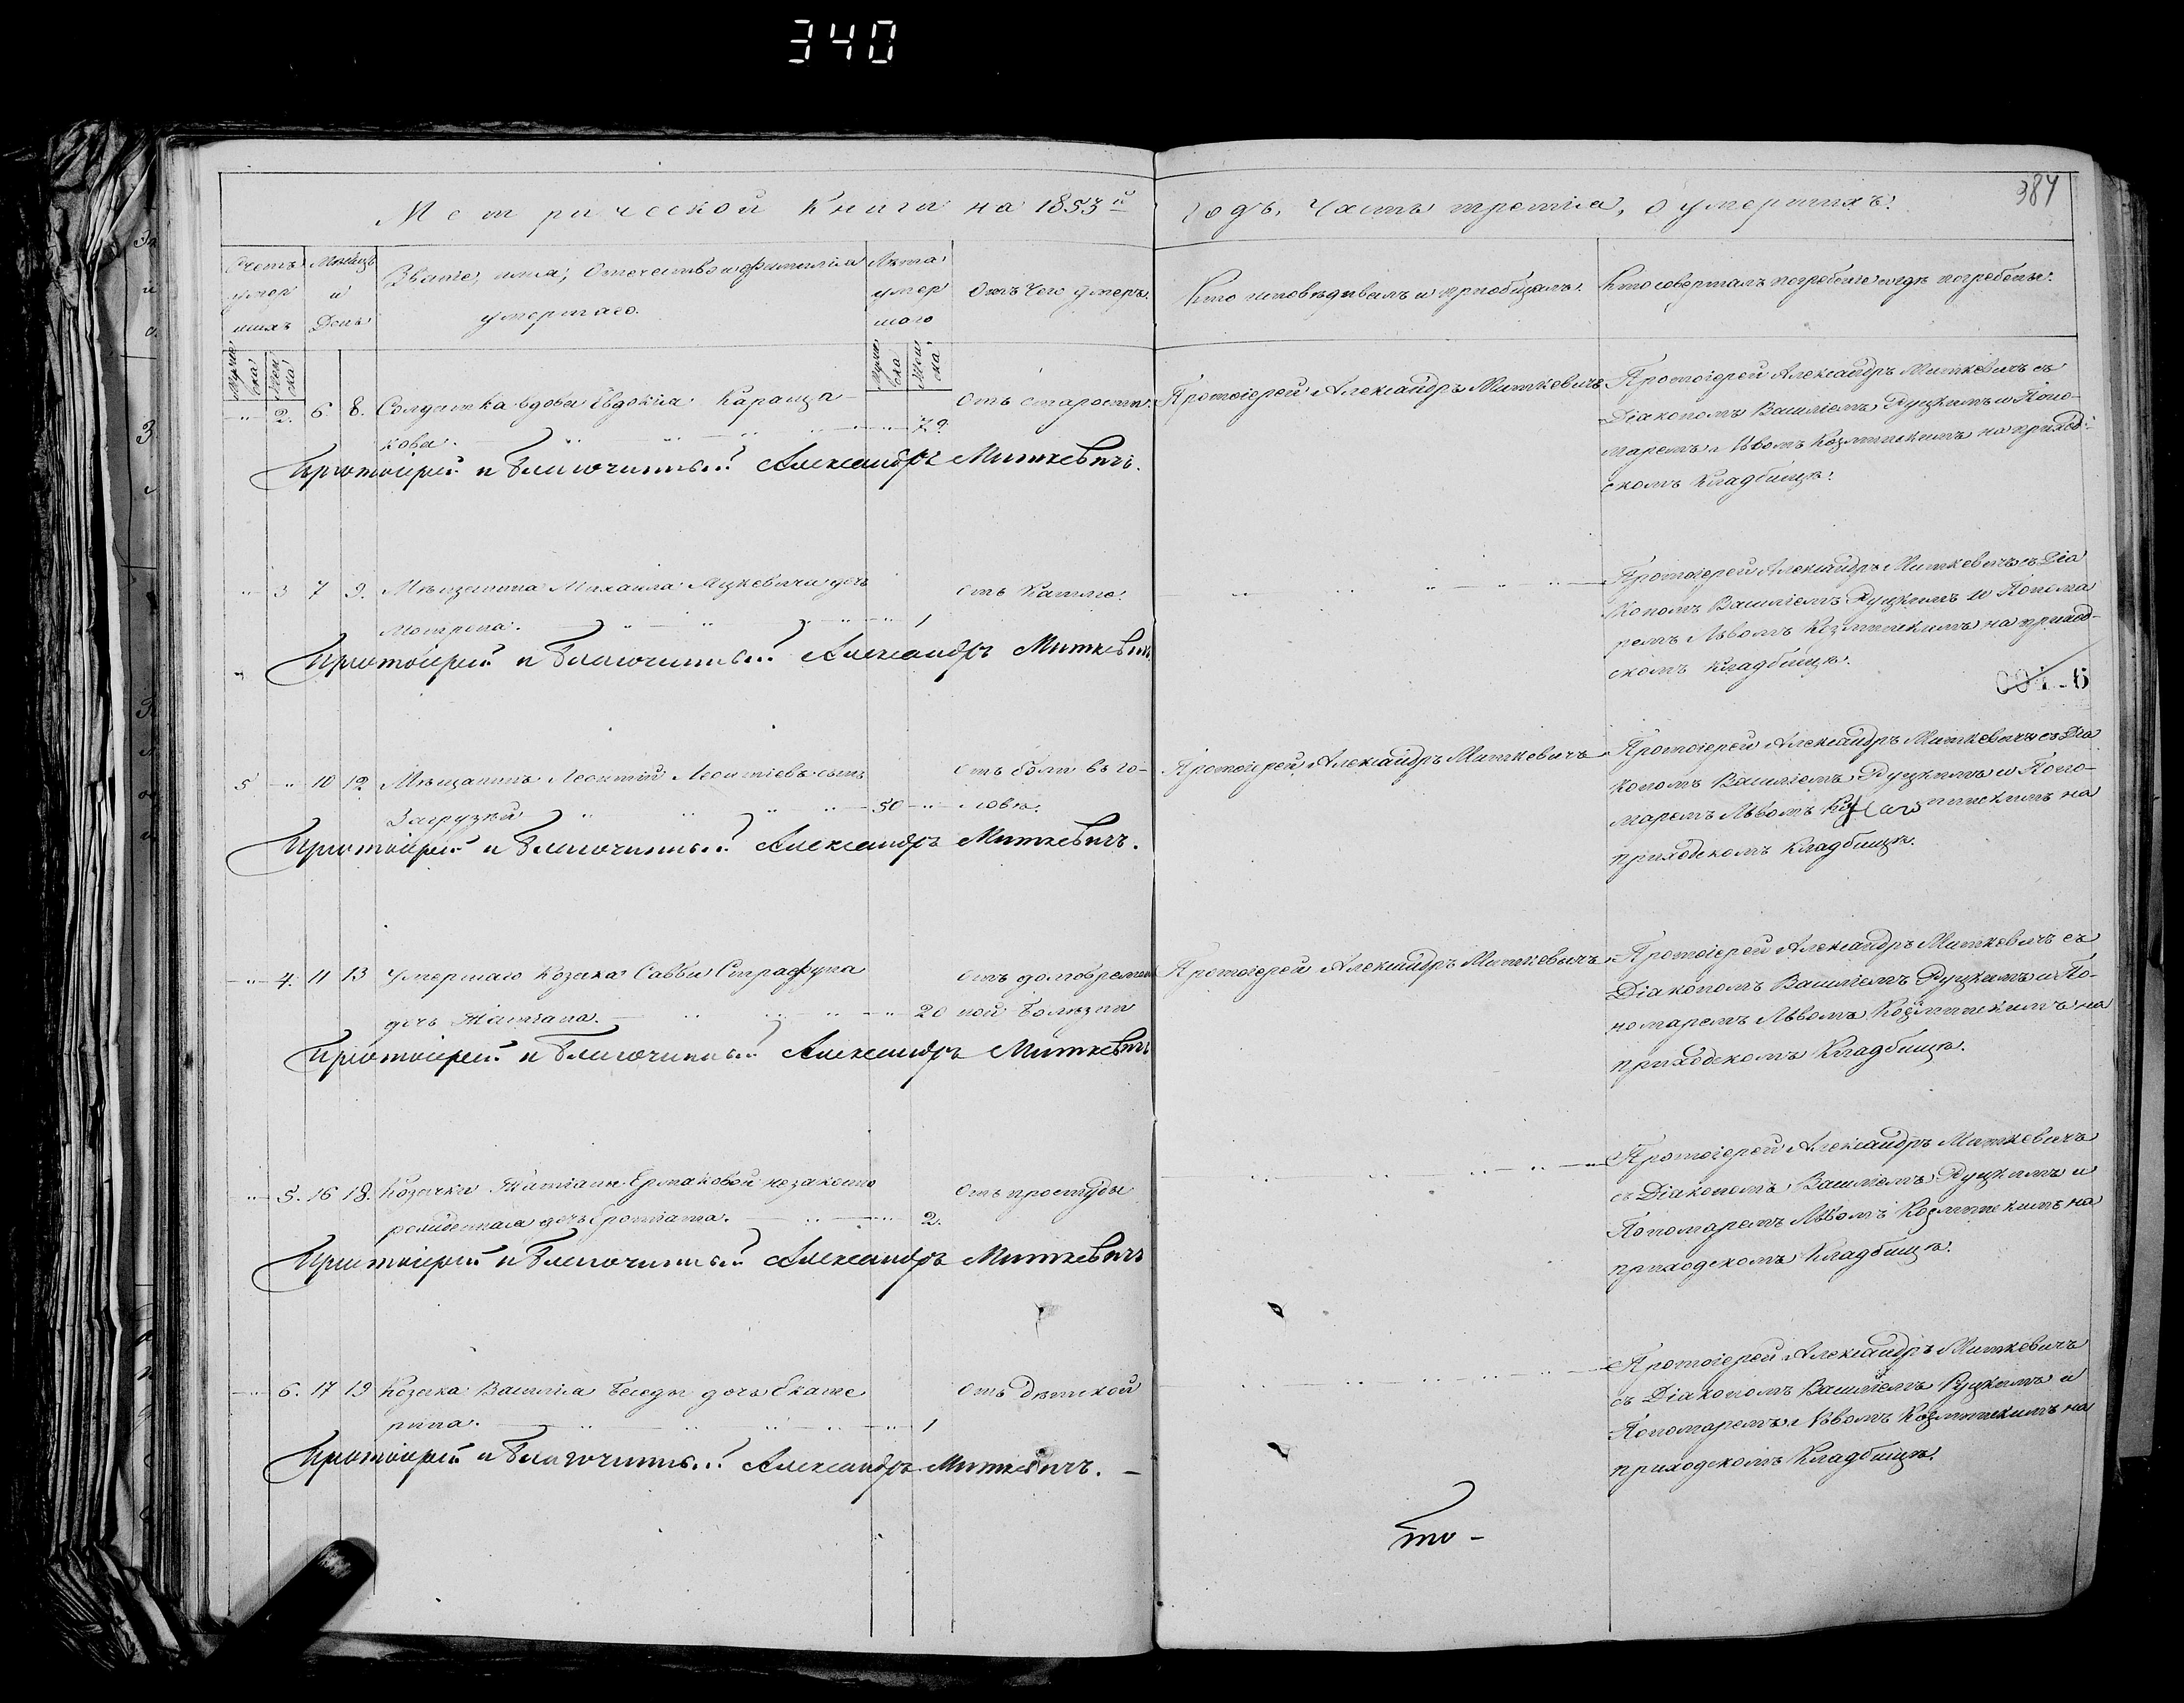 340
384
Метрической Книги на 1853й Годъ, Часть третія, о умершихъ.
Счетъ умер шихъ
Мѣсяцъ и День
Званіе, имя, Отечество и фамилія умершаго.
Лѣта умер шаго
Отъ Чего умеръ.
Кто исповѣдывалъ и пріобщалъ.
Кто совершалъ погребеніе и гдѣ погребены.
Муже ска
Жен ска
Муже ска
Жен ска
" 2. 6. 8. Солдатка вдова Евдокіа Каранда-
кова. 79.
Отъ старости.
Протоіерей Александръ Миткевичъ
Протоіерей Александръ Миткевичъ съ
Діакономъ Василіемъ Руцкимъ и Поно-
маремъ Львомъ Козминскимъ на приход-
скомъ Кладбищѣ.
Протоіерей и Благочинный Александръ Миткевичъ.
" 3 7 9. Мѣщанина Михаила Яцкевича дочь
Мотрона. 1
Отъ Кашлю.
Протоіерей Александръ Миткевичъ съ Діа
кономъ Василіемъ Руцкимъ и Понома
ремъ Львомъ Козминскимъ на приход-
скомъ Кладбищѣ.
Протоіерей и Благочинный Александръ Миткевичъ
6
5 " 10 12 Мѣщанинъ Леонтій Леонтіевъ сынъ
Загрузкій 50 "
Отъ боли въ го-
ловѣ.
Протоіерей Александръ Миткевичъ
Протоіерей Александръ Миткевичъ съ Діа
кономъ Василіемъ Руцкимъ и Поно-
маремъ Львомъ Козминскимъ на
приходскомъ Кладбищѣ.
Протоіерей и Благочинный Александръ Миткевичъ.
" 4. 11 13 Умершаго Козака Саввы Страфуна
дочь Татіана. 20
Отъ долговремен
ной болѣзни
Протоіерей Александръ Миткевичъ
Протоіерей Александръ Миткевичъ съ
Діакономъ Василіемъ Руцкимъ и По-
номаремъ Львомъ Козминскимъ на
приходскомъ Кладбищѣ.
Протоіерей и Благочинный Александръ Миткевичъ
" 5. 16 18. Козачки Татіаны Ермаковой незаконно
рожденная дочь 2.
Отъ простуды
Протоіерей Александръ Миткевичъ
съ Діакономъ Василіемъ Руцкимъ и
Пономаремъ Львомъ Козминскимъ на
приходскомъ Кладбищѣ.
Протоіерей и Благочинный Александръ Миткевичъ
" 6. 17 19 Козака Василіа Беседы дочь Екате
рина. 1
Отъ дѣтской
Протоіерей Александръ Миткевичъ
съ Діакономъ Василіемъ Руцкимъ и
Пономаремъ Львомъ Козминскимъ на
приходскомъ Кладбищѣ.
Протоіерей и Благочинный Александръ Миткевичъ. -
то-